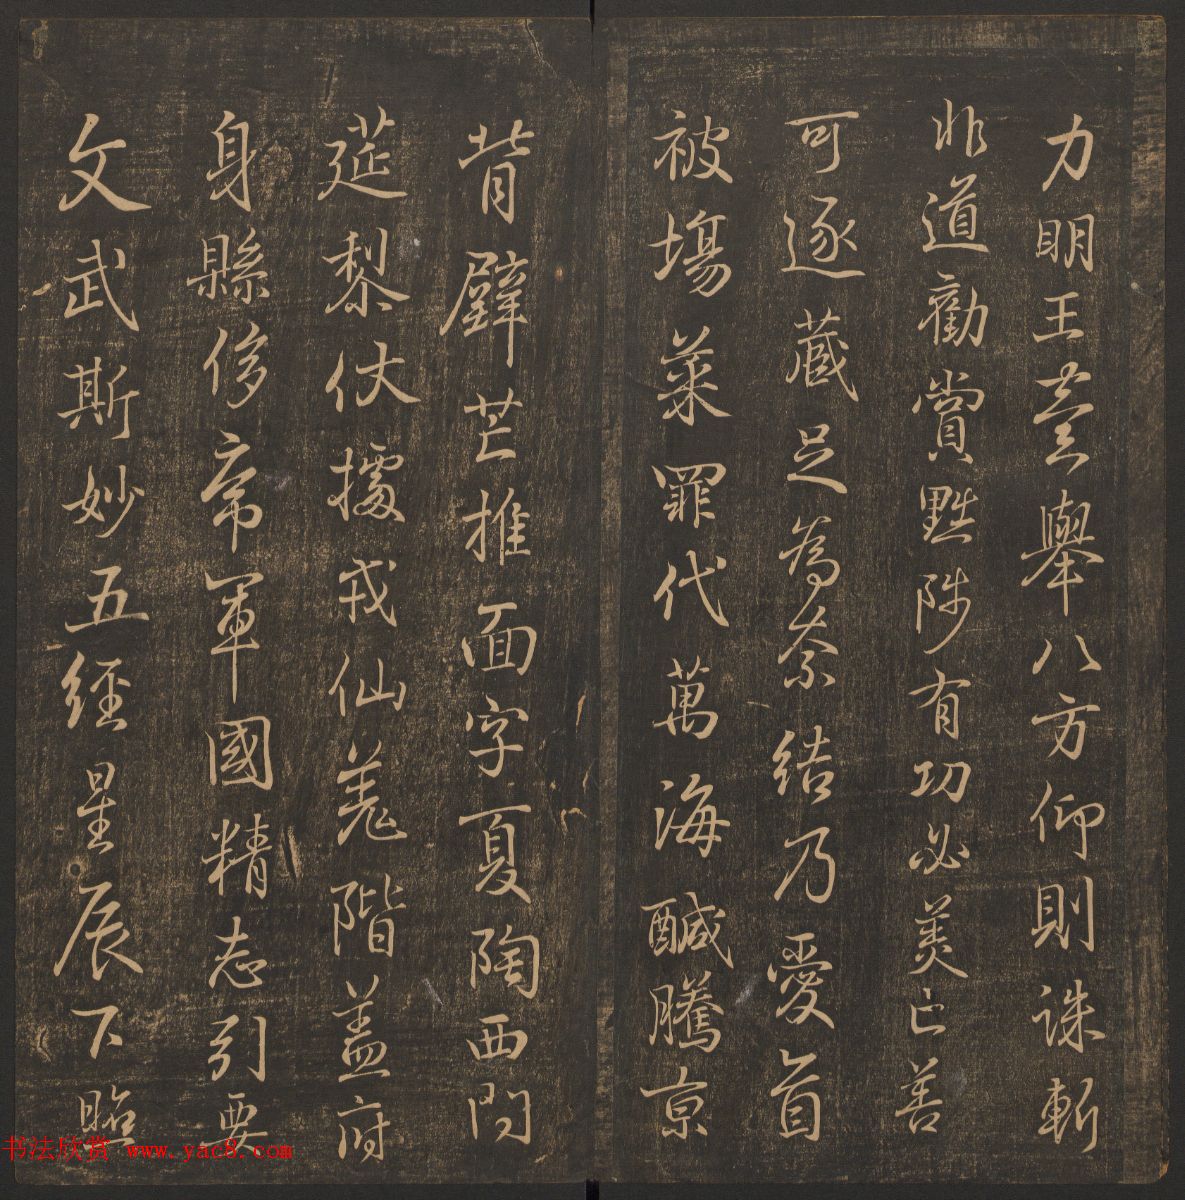 力明王臺舉八方仰則誅斬
非道勸賞黜陟有功必美亡善
可逐蔵足為奈結乃愛首
被場菜罪代萬海鹹騰京
背壁芒推面字夏陶西問
莚黎仗據戎仙羌階蓋府
身縣侈帝軍國精志引要
文武斯妙五經星辰下臨
书法欣赏 www.yac8.com